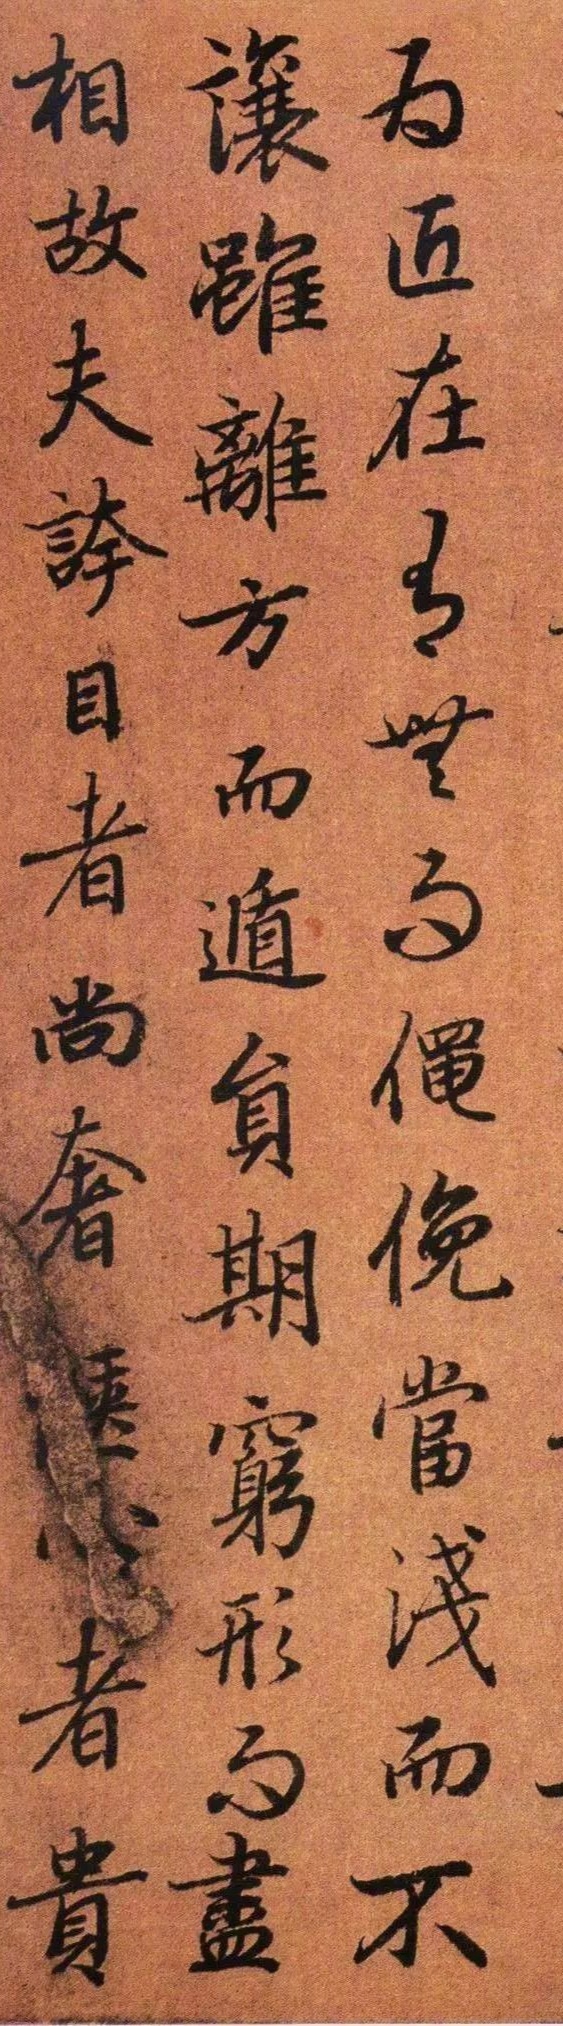 為匠在有無而僶俛當淺而不
讓雖離方而遁員期窮形而盡
相故夫誇目者尚奢愜心者貴